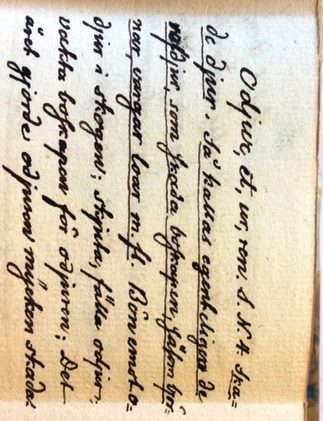 Odjur, et, ur, ren. S. N. 4. Ska=
de djur. Så kallas egenteligen de
rofdjur, som skada boskapen, såsom björ=
nar, vargar loar m. fl. Bön emot o=
djur i skogen; skjuta, fälla odjur;
vakta boskapen för odjuren; Det
året gjorde odjuren mycken skada.